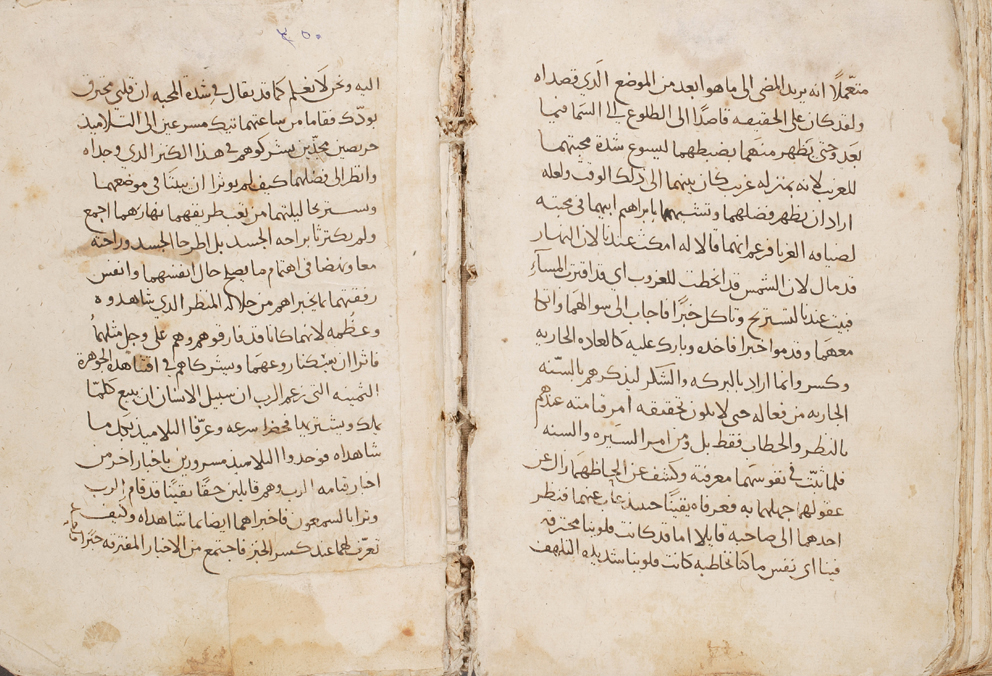 متعملًا انه يريد المضى الى ما هو ابعد من الموضع الذي قصداه
ولقد كان على الحقيقه قاصدًا الى الطلوع الى السما فيما
بعد وحتى يظهر منهما بضبطهما ليسوع شدة محبتهما
للغربا لانه بمنزله غريب كان بينهما الى ذلك الوقت ولعله
اراد ان يظهر فضلهما وتشبههما بابراهيم ابيهما في محبته
لضيافه الغربا فرغم انهما قالا له امكث عندنا لان النهار
قد مال لان الشمس قد انحطت للغروب اي قد اقترب المسآء
فبيت عندنا لتستريح وتاكل خبزًا فاجاب الى سوالهما واتكا
معهما وقدموا خبزا فاخده وبارك عليه كالعاده الجاريه
وكسر وانما اراد بالبركه والشكر ليذكرهم بالسنّه
الجاريه من فعاله حتى لا يكون تحقيقه امر قيامته عندهم
بالنظر والخطاب فقط بل ومن امر السيره والسنه
فلما ثبت في نفوسهما معرفته وكشف عن الحاظهما زال عن
عقولهما جهلهما به فعرفاه يقينًا حينيد غاب عنهما فنظر
احدهما الى صاحبه قايلا اما قد كانت قلوبنا محترقه
فينا اي نفس ما كنا نخاطبه كانت قلوبنا شديده التلهف
٣٥٠
اليه ونحن لا نعلم كما قد يقال في شدة المحبه ان قلبي محترق
بودّك فقاما من ساعتهما تيك مسرعين الى التلاميذ
حريصين مجدّين يشركوهم في هذا الكنز الدي وجداه
وانظر الى فضلهما كيف لم يوثرا ان يبيتا في موضعهما
ويستريحا ليلتهما من تعب طريقهما نهارهما اجمع
ولم يكترثا براحه الجسد بل اطرحا الجسد وراحته
معا ونهضا في اهتمام ما يصلح حال انفسهما وانفس
رفقتهما بما يخبراهم من جلاله المنظر الدي شاهدوه
وعظمه لانهما كانا قد فارقوهم وهم على وجل مثلهما
فاثرا ان يسكنا روعهما ويشركاهم في اقتنا هده الجوهرة
الثمينه التي زعم الرب ان سبيل الانسان ان يبيع كلما
يملك ويشتريها فحضرا سرعه وعرّفا التلاميذ بكل ما
شاهداه فوجدوا التلاميذ مسرورين باخبار اخر من
اخبار قيامه الرب وهم قايلين حقًا يقينًا قد قام الرب
وترايا لسمعون فاخبراهما ايضا بما شاهداه وكيف
تعرّف لهما عند كسر الخبز فاجتمع من الاخبار المفترقه خبرًا